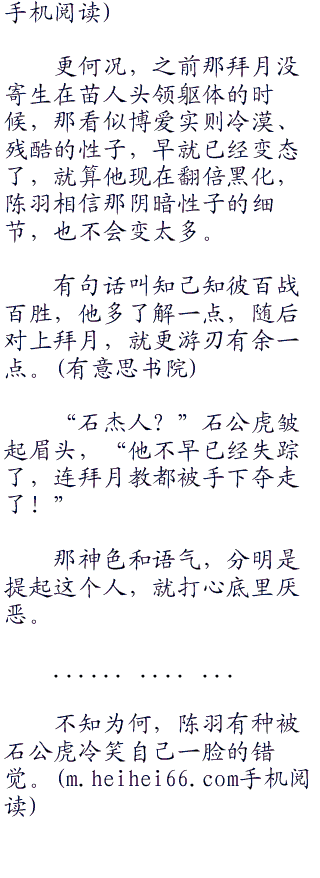 手机阅读)
更何况，之前那拜月没
寄生在苗人头领躯体的时
候，那看似博爱实则冷漠、
残酷的性子，早就已经变态
了，就算他现在翻倍黑化，
陈羽相信那阴暗性子的细
节，也不会变太多。
有句话叫知己知彼百战
百胜，他多了解一点，随后
对上拜月，就更游刃有余一
点。(有意思书院)
“石杰人？”石公虎皱
起眉头，“他不早已经失踪
了，连拜月教都被手下夺走
了！”
那神色和语气，分明是
提起这个人，就打心底里厌
恶。
...... .... ...
不知为何，陈羽有种被
石公虎冷笑自己一脸的错
觉。(m.heihei66.com手机阅
读)